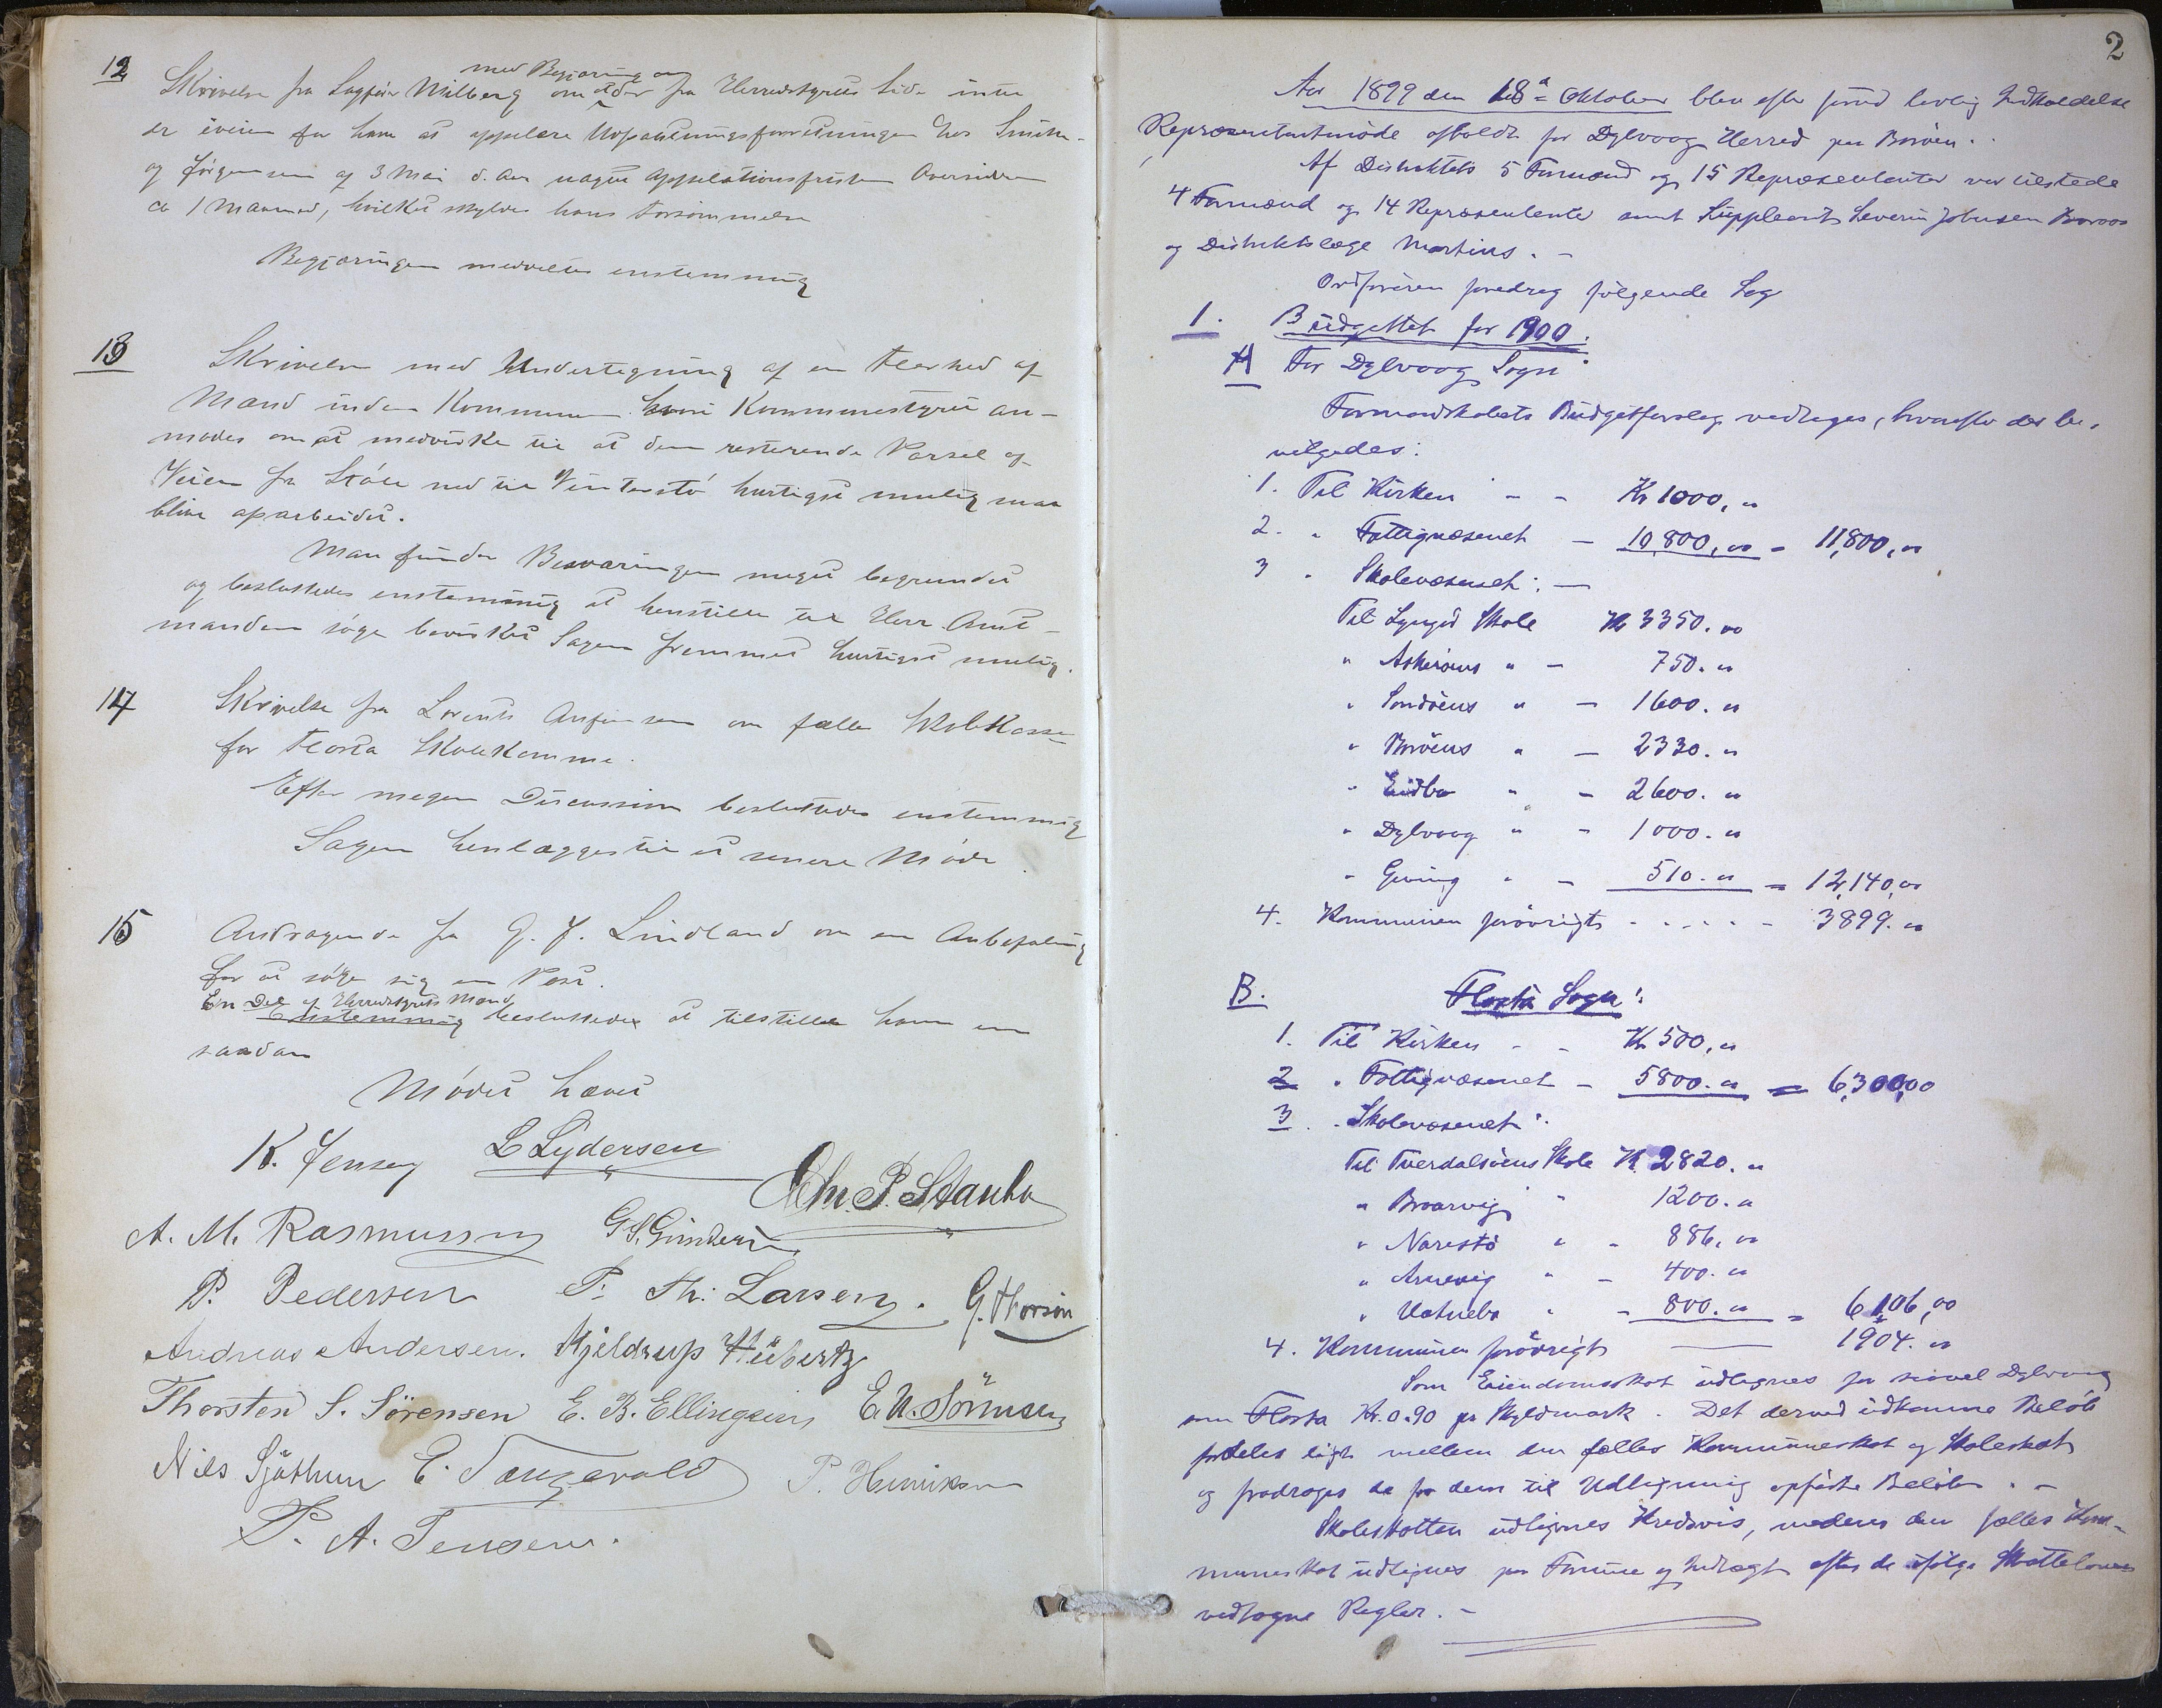 12
med Begjæring om
Skrivelse fra Sagfører Milberg om at der fra Herredstyrets Side intet
er iveien for ham at appelere Udpantningsforretningen hos Smith
og Jørgensen af 3 Mai d. Aar uagtet Appelationsfristen
ca 1 Maaned, hvilket skyldes hans Forsømmelse
Begjæringen enstemmig
13
Skrivelse med Undertegning af en Flerhed af
Mænd inden Kommunen hvori Kommunestyret an-
modes om at medvirke til at den resterende Parsel af
Veien fra Ståle ned til Vinterstø hurtigst mulig maa
blive oparbeidet.
Man fandt Besværingen meget begrundet
og besluttedes enstemmig at henstille til Herr Amt-
manden søge bevirket Sagen fremmet hurtigst mulig.
14
Skrivelse fra Lorents Anfinsen om fælles Skolekasse
for Flosta Skolekomme.
Efter megen Discussion besluttedes enstemmig
Sagen henlægges til et senere Møde
15
Andragende fra G. J. Lindland om en Anbefaling
for at søge sig en Post.
En Del af Herredstyrets Mænd
Enstemmig besluttedes at tilstille ham en
saadan
Mødet hævet
K. Jensen L Lydersen
Chr. P. Staubo
A. M. Rasmussen G S. Gundersen
P. Pedersen P. Th: Larsen. G. Thorsøn
Andreas Andersen. Kjeldrup Hübertz
Thorsten S. Sörensen E. B. Ellingsen E. N. Sörensen
Nils Sjåthun E. Tangevald P. Henriksen
P. A. Jensen.
2
Aar 1899 den 18de Oktober blev efter forud lovlig Indkaldelse
Repræsentantmøde afholdt for Dybvaag Herred paa Borøen.
Af Distriktets 5 Formænd og 15 Repræsentanter var tilstede
4 Formænd og 14 Repræsentanter samt Suppleant Severin Johnsen
og Distriktslæge Martins. -
Ordføreren foredrog følgende Sag
1. Budgettet for 1900.
A For Dybvaag Sogn:
Formandskabets Budgetforslag vedtoges, hvorefter der be-
vilgedes:
1. Til Kirken - - Kr 1000,00
2. " Fattigvæsenet - 10,800,00 = 11,800,00
3 " Skolevæsenet: -
Til Lyngør Skole Kr 3350.00
" Askerøens " - 750.00
" Sandøens " - 1600.00
" Borøens " - 2330.00
" Eidbo " - 2600.00
" Dybvaag " - 1000.00
" Gjeving " - 510.00 = 12,140,00
4. Kommunen forøvrigt - - - - - 3899.00
B. Flosta Sogn:
1. Til Kirken - - Kr 500,00
2 " Fattigvæsenet - 5800.00 = 6,300,00
3. " Skolevæsenet:
Til Tverdalsøens Skole Kr 2820.00
" Braarvig " 1200.00
" Narestø " - 886,00
" Arnevig " - 400.00
" Vatnebo " - 800.00 = 6106,00
4. Kommunen forøvrigt — 1904.00
Som Eiendomsskat udlignes for saavel Dybvaag
som Flosta Kr. 0.90 pr Skyldmark. Det derved udkomne Beløb
fordeles ligt mellem den fælles Kommuneskat og Skoleskat
og fradrages de for dem til Udligning opførte Beløb. -
Skoleskatten udlignes Kredsvis, medens den fælles Kom-
muneskat udlignes paa Formue og Indtægt efter de ifølge Skatteloven
vedtagne Regler. -